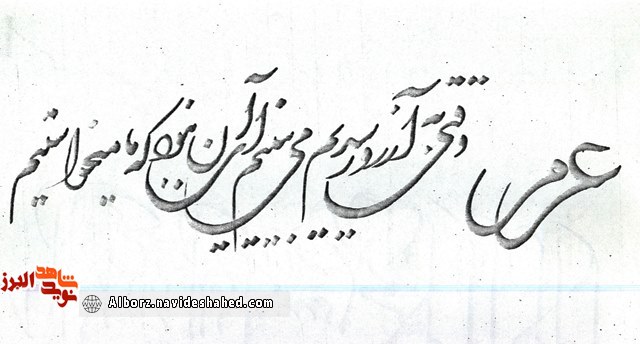 وقتی به آرزو رسیدیم می بینیم این آن نبود که ما میخواستیم
نوید شاهد البرز
Alborz.navideshahed.com